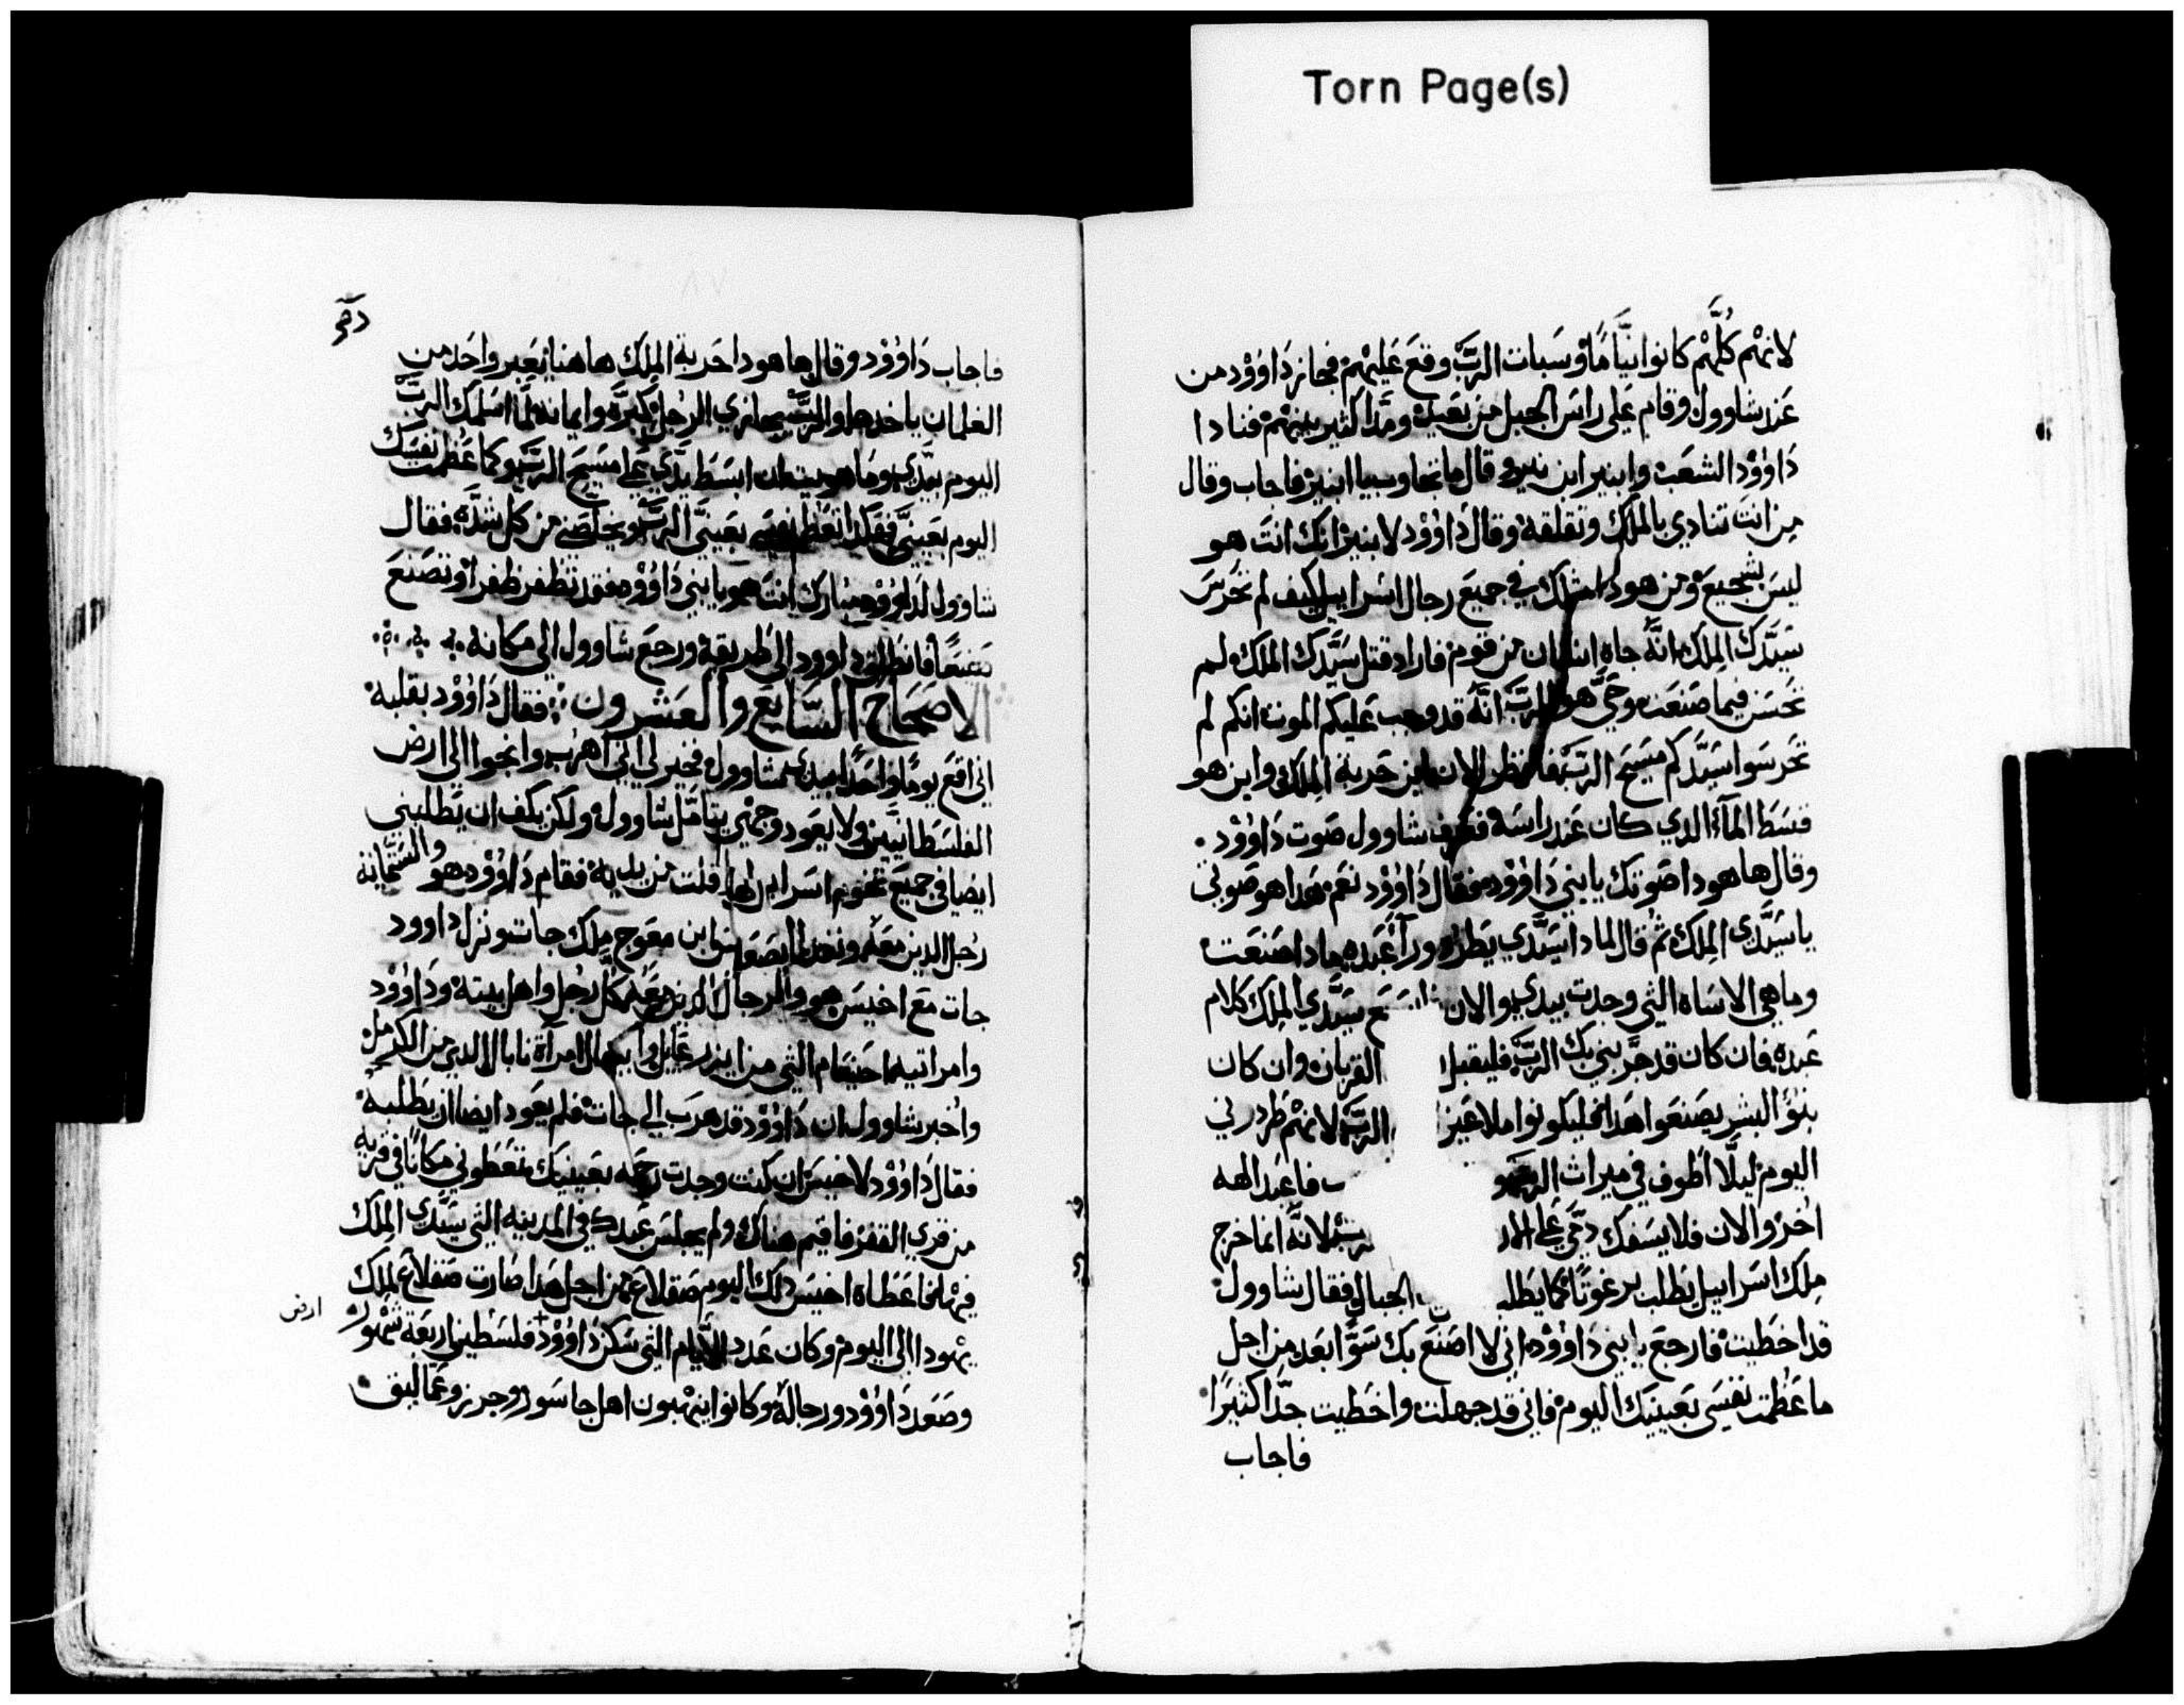 Torn Page(s)
لانهُم كُلَّهُم كانوا نيَّامًا وسَبات الربَّ وقعَ عَليهُم فجاز دَاوُوْد من
عَند شاوول وقام عَلي راسَ الجبل من بَعَيد ومَّدا كثير بينهُم فنادا
دَاوُوْد الشعَب وابنير ابن نير وقال ما تجاوب يا ابنير فاجاب وقال
من انتَ تنادي بالملك وتقلقه وقال دَاوُوْد لابنير انك انتَ هو
ليسَ بشجيعَ ومن هودا مثلك في جميعَ رجال اسَراييل كيف لم تحَرسَ
سَيَّدك المِلك انَّه جاه انسَان من قوم فاراد قتل سَيَّدك الملك ولم
تحَسَن فيما صَنعَت وحَيَّ هو الربَّ انَّه قد وجب عَليكم الموت انكم لم
تحَرسَوا سَيَّدكم مسَيح الربَّ فانظر الان اين حَربة المِلك واين هو
قسَط المآء الدي كان عَند راسَه فعَرف شاوول صَوت دَاوُوْد
وقال هاهودا صَوتك يابني دَاوُوْد فقال دَاوُوْد نعَم هَدا هو صَوتي
ياسَيَّدي المِلك ثُم قال لمادا سَيَّدي يَطرد ورآ عَبده مادا صَنعَت
وما هي الاسَاه التي وجدت بيدي والان عَ سَيَّدي المِلك كلام
عَبده فان كان قد حرَّبني بك الربَّ فليقبل القربان وان كان
بنوُ البشر يصَنعَوا هَدا فليكونوا ملاعَين الربَّ لانهُم طَردرني
اليوم ليلَّا اَطوف في ميراث الربَّ ب فاعَبد الهه
اخر والان فلا يسَفك دمَّي عَلي الار لانَّه انما خرج
ملك اسَراييل يطَلب برغوتًا كما يَطلب الجبال فقال شاوول
قد اخطَيت فارجعَ يابني دَاوُوْد اني لا اصَنعَ بك سَوًّا بعَد من اجل
ما عَظمت نفسَي بَعَينيك اليوم فاني قد جهلت واخطَيت جدًّا كثيرًا
فاجاب
فاجاب دَاوُوْد وقال هاهودا حَربة المِلك هاهنا يعَبر واحَد من
الغلمان ياخدها والربَّ يجازي الرجُل كبرَّه وايمانه لما اسَلمك الربَّ
اليوم بيدَّي وما هويت ان ابسَط يدَّي عَلي مسَيح الربَّ وكما عَظمت نفسَك
اليوم بعَينيَّ فهَكدا تعَظم نفسَي بعَينيَّ الربَّ ويخلصَني من كل شدَّه فقال
شاوول لدَاوُوْد مبارك انتَ هو يابني دَاوُوْد فقد تظفر ظفرًا وتصَنعَ
صَنعًا فانطَلق داوود الي طَريقه ورجعَ شاوول الي مكانه
الاصَحَاح السَّابعَ والعَشرون فقال دَاوُوْد بقلبه
اني اقعَ يومًا واحَدًا بيد شاوول فخير لي اني اهرب وانجوا الي ارض
الفلسَطانيَّين ولا يعَود وجهي يتامَّل شاوول ولكن يكف ان يَطلبني
ايضا في جميعَ تخوم اسَراييل فافلت من يديه فقام دَاوُوْد هو والستمَّايَة
رجُل الدين معَه ونفدا الي صَفانوا ابن معَوج ملك جات ونزل داوود
جات معَ اخيسَ هو والرجال الدين معَه كل رجُل واهل بيته ودَاوُوْد
وامراتيه احَنعَام التي من ايزرعَايل وابيجال امراة نابال الدي من الكرمل
واخبر شاوول ان دَاوُوْد قد هرَب الي جات فلم يعَود ايضا ان يطَلبه
فقال دَاوُوْد لاخيسَ ان كنت وجدت رحَمه بعَينيك تعَطوني مكانًا في قريه
من قري القفر فاقيم هناك ولم يجلسَ عَبدك في المدينه التي سَيَّدي المِلك
فيها فاعَطاه اخيسَ دلك اليوم صَقلاعَ من اجل هَدا صارت صَقلاعَ لملك
يهُودا الي اليوم وكان عَدد الايَّام التي سَكن دَاوُوْد فلسَطين اربعَة شهُور
ارض
وصَعَد دَاوُوْد ورجاله وكانوا ينهبون اهل جاسَور وجرز وعَماليق